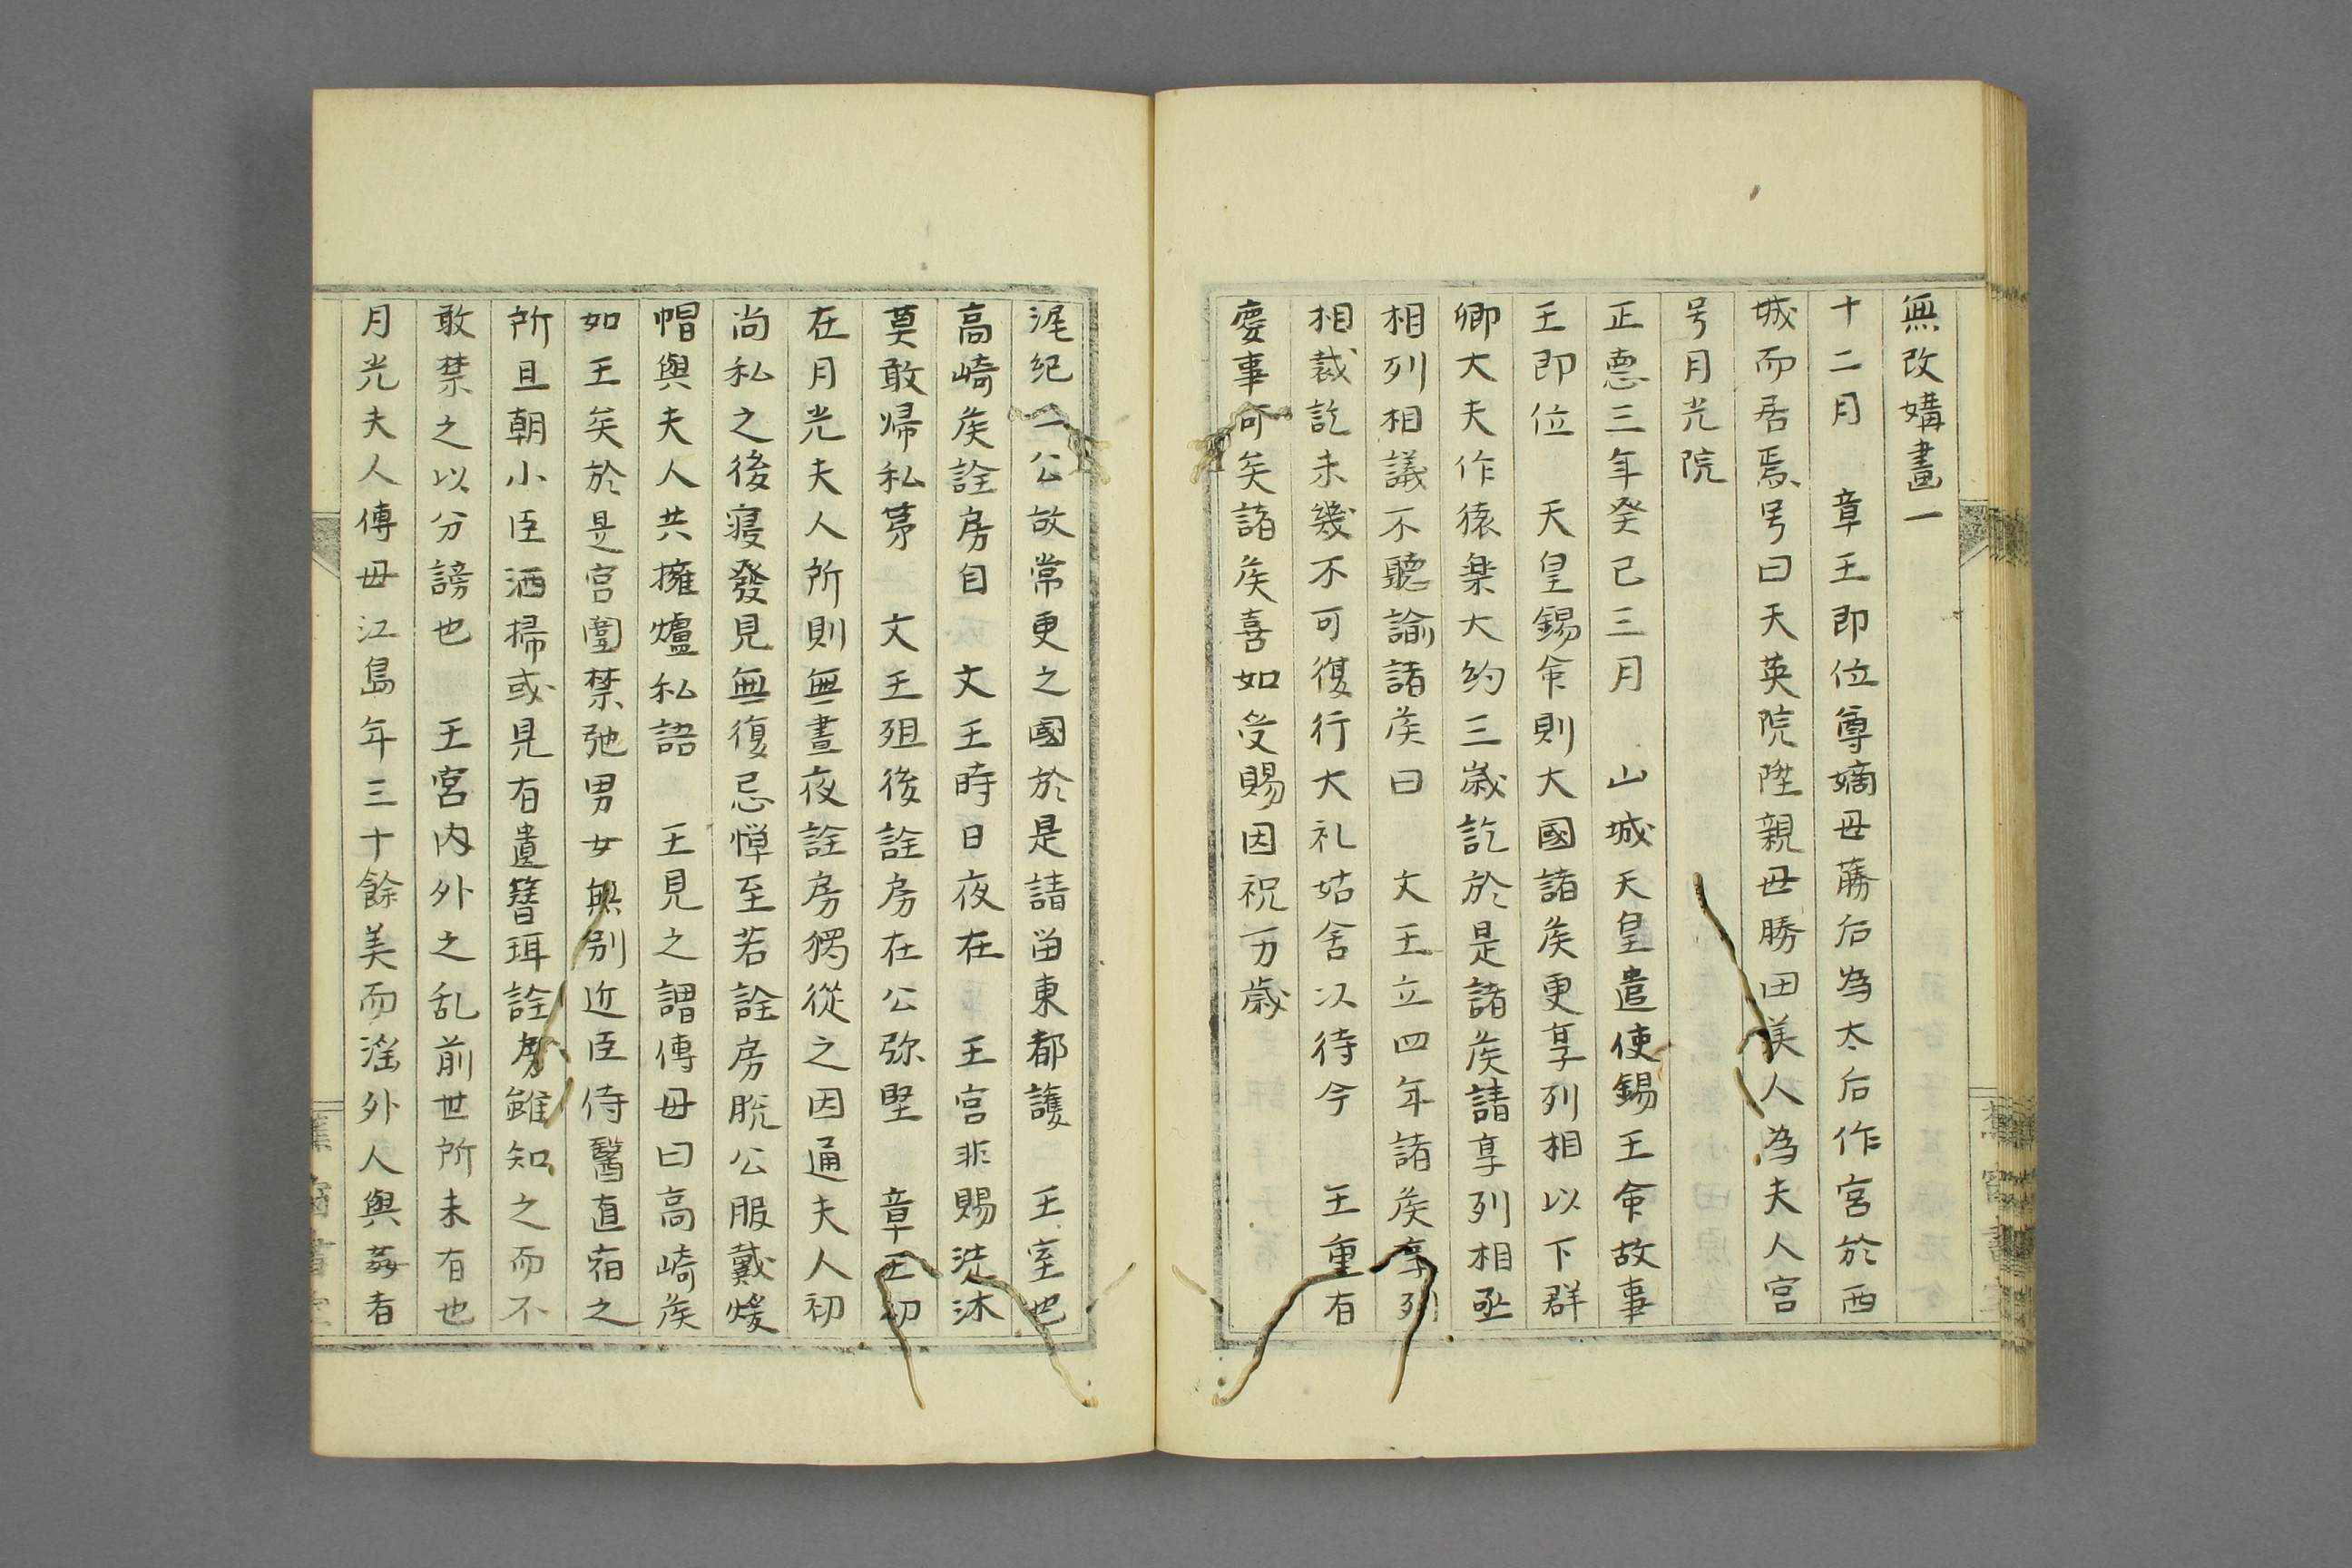 無改媾畫一
十二月　章王即位尊嫡母藤后為太后作宮於西
城而居焉号曰天英院陞親母勝田美人為夫人宮
号月光院
正悳三年癸巳三月　山城天皇遣使錫王命故事
王即位　天皇錫命則大國諸侯更享列相以下群
卿大夫作猿楽大約三歳訖於是諸侯請享列相亟
相列相議不聽諭諸侯曰　文王立四年諸侯享列
相裁訖未幾不可復行大礼姑舍以待今　王重有
慶事可矣諸侯喜如受賜因祝万歳
浘紀二公故常更之國於是請畄東都護　王室也
高崎侯詮房自　文王時日夜在　王宮非賜洗沐
莫敢帰私苐　文王殂後詮房在公弥堅　章王初
在月光夫人所則無晝夜詮房獨從之因通夫人初
尚私之後寝發見無復忌憚至若詮房脱公服戴煖
帽與夫人共擁爐私語　王見之謂傅母曰高崎侯
如王矣於是宮闈禁弛男女無別近臣侍醫直宿之
所旦朝小臣洒掃或見有遺簪珥詮房雖知之而不
敢禁之以分謗也　王宮内外之乱前世所未有也
月光夫人傅母江島年三十餘美而滛外人與姦者